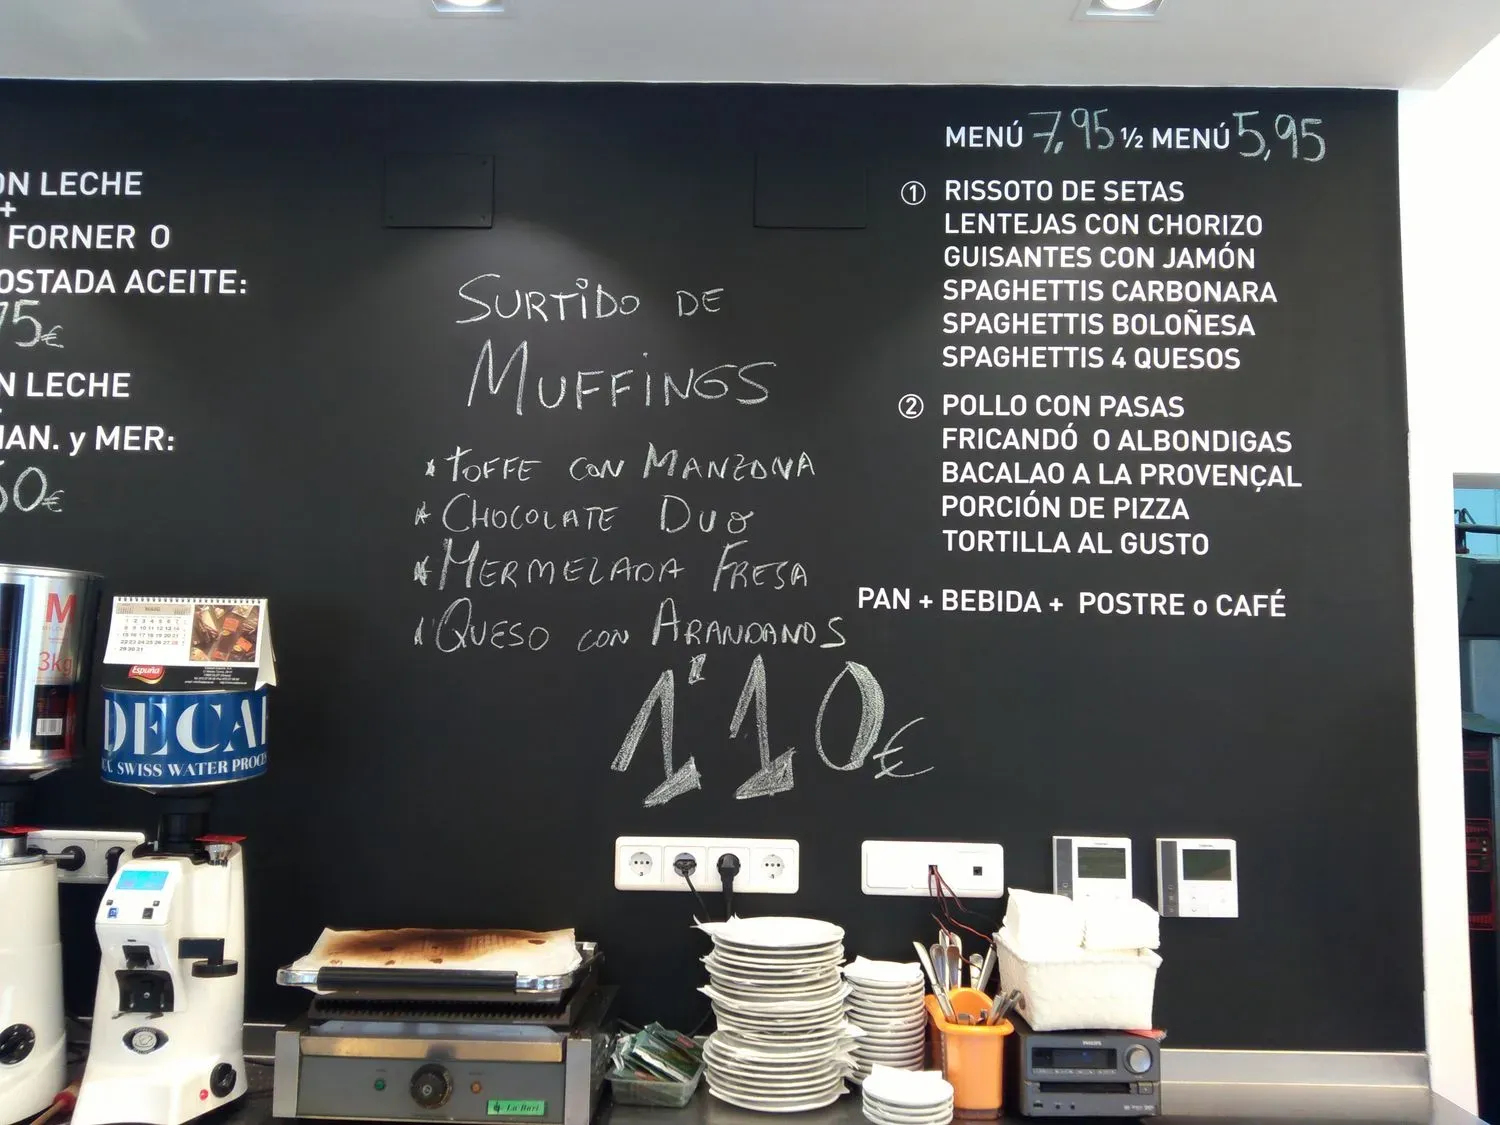 ON LECHE
+
FORNER O
OSTADA ACEITE:
75€
N LECHE
IAN. y MER:
50€
SURTIDO DE
MUFFINGS
* TOFFE CON MANZANA
* CHOCOLATE DUO
* MERMELADA FRESA
* QUESO CON ARANDANOS
1'10€
MENÚ 7,95 ½ MENÚ 5,95
① RISSOTO DE SETAS
LENTEJAS CON CHORIZO
GUISANTES CON JAMÓN
SPAGHETTIS CARBONARA
SPAGHETTIS BOLOÑESA
SPAGHETTIS 4 QUESOS
② POLLO CON PASAS
FRICANDÓ O ALBONDIGAS
BACALAO A LA PROVENÇAL
PORCIÓN DE PIZZA
TORTILLA AL GUSTO
PAN + BEBIDA + POSTRE o CAFÉ
M
3kg
Espuña
DECAF
SWISS WATER PROCES
PHILIPS